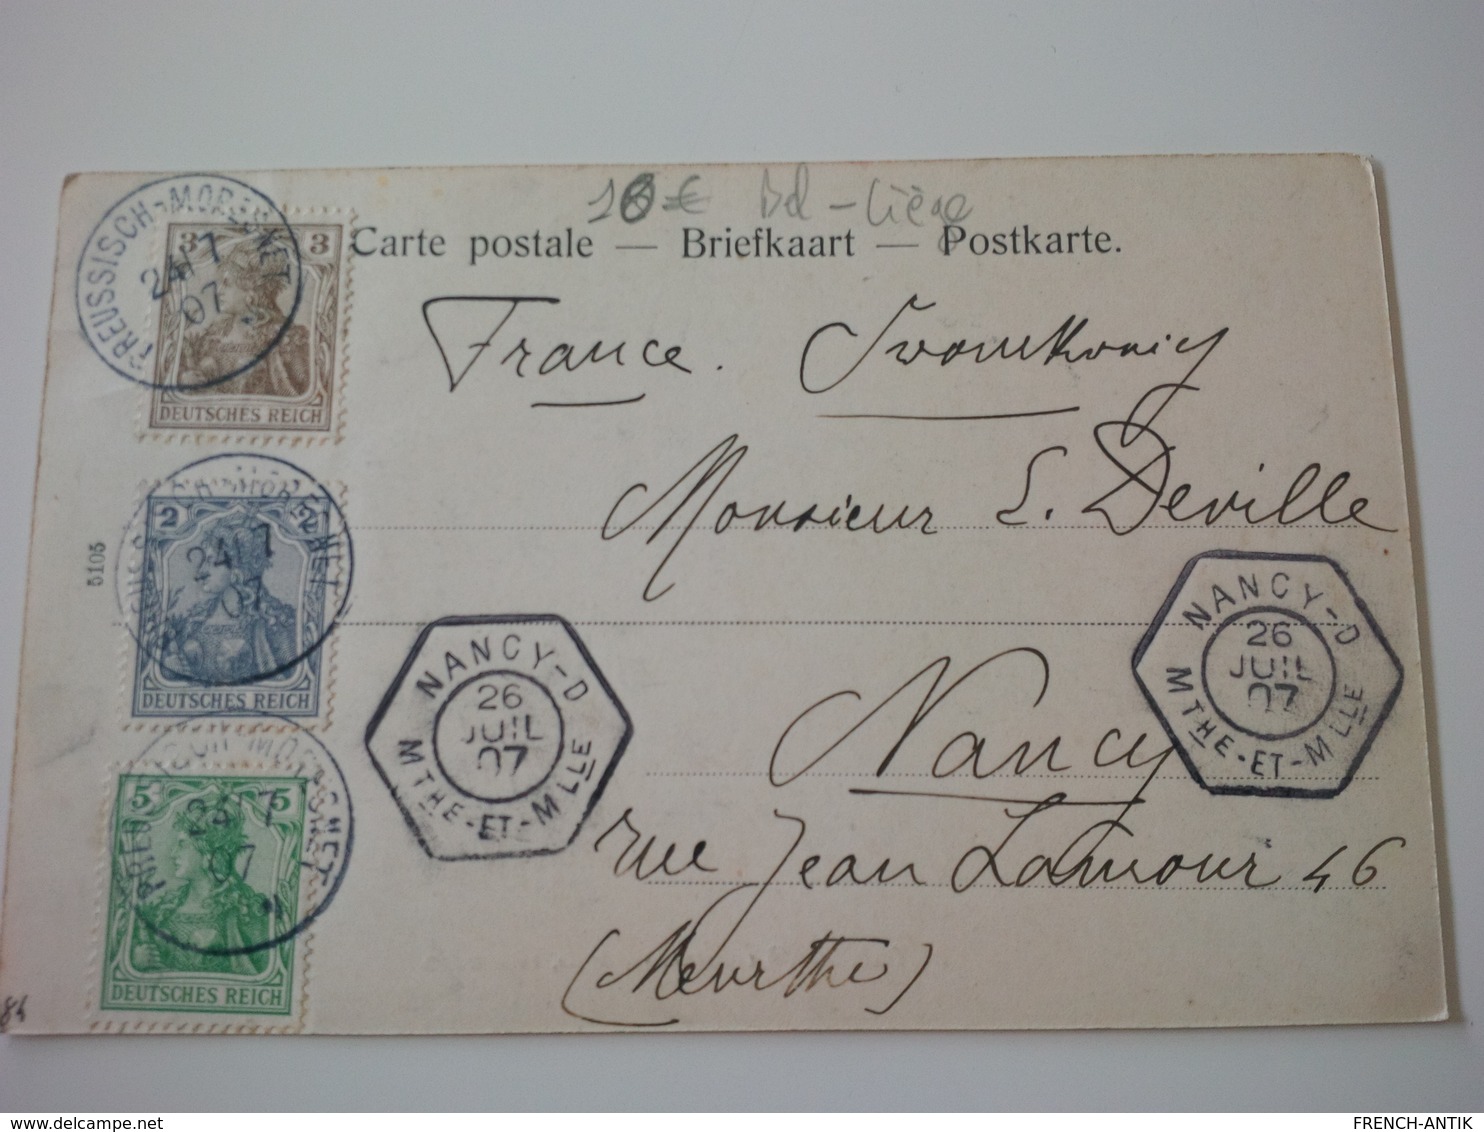 10€ Bd - Liège
Carte postale — Briefkaart — Postkarte.
PREUSSISCH-MORESNET
24/7
07
3 3
DEUTSCHES REICH
France.
Monsieur L. Deville
2 2
24/7
07
DEUTSCHES REICH
5105
NANCY-D
26
JUIL
07
MTHE-ET-MLLE
NANCY-D
26
JUIL
07
MTHE-ET-MLLE
Nancy
rue Jean Lamour 46
(Meurthe)
PREUSSISCH-MORESNET
24/7
07
5 5
DEUTSCHES REICH
delcampe.net
FRENCH-ANTIK